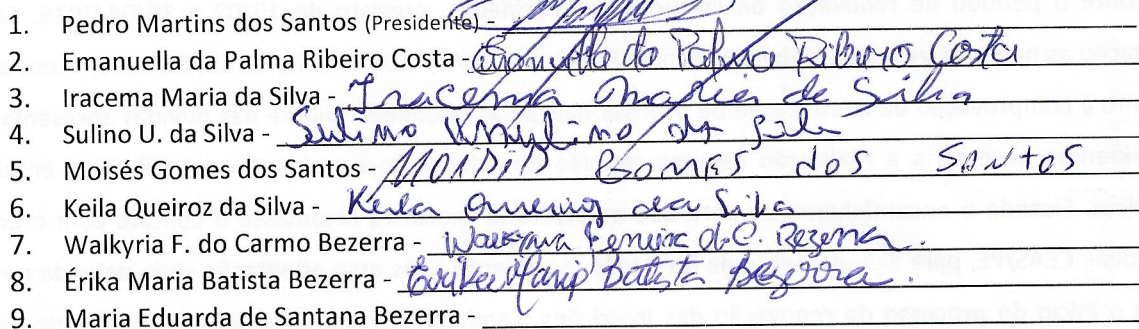 1. Pedro Martins dos Santos (Presidente) -
2. Emanuella da Palma Ribeiro Costa - Emanuella da Palma Ribeiro Costa
3. Iracema Maria da Silva - Iracema Maria de Silva
4. Sulino U. da Silva - Sulino da Silva
5. Moisés Gomes dos Santos - MOISÉS GOMES dos SANtOS
6. Keila Queiroz da Silva - Keila Queiroz da Silva
7. Walkyria F. do Carmo Bezerra - Walkyria Ferreira do C. Bezerra.
8. Erika Maria Batista Bezerra - Erika Maria Batista Bezerra.
9. Maria Eduarda de Santana Bezerra -